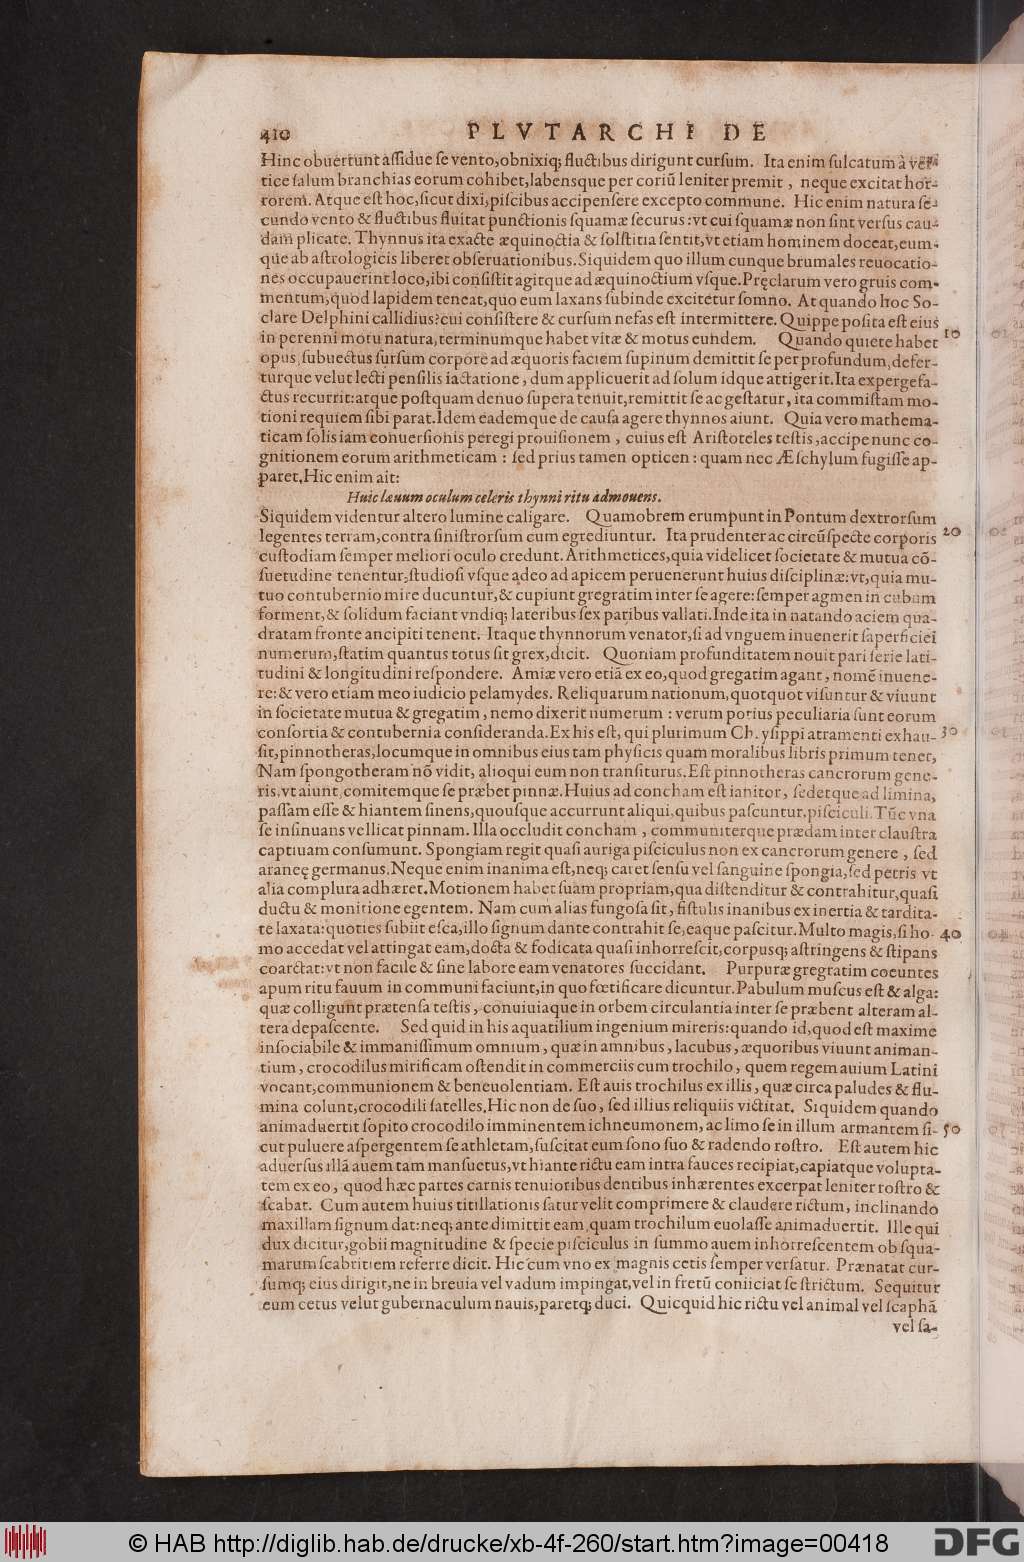 410 PLVTARCHI DE
Hinc obuertunt aſſidue ſe vento,obnixiq; fluctibus dirigunt curſum. Ita enim ſulcatum à ver-
tice ſalum branchias eorum cohibet,labensque per coriū leniter premit , neque excitat hor-
rorem. Atque eſt hoc,ſicut dixi,piſcibus accipenſere excepto commune. Hic enim natura ſe-
cundo vento & fluctibus fluitat punctionis ſquamæ ſecurus:vt cui ſquamæ non ſint verſus cau-
dam plicate. Thynnus ita exacte æquinoctia & ſolſtitia ſentit,vt etiam hominem doceat,eum-
que ab aſtrologicis liberet obſeruationibus.Siquidem quo illum cunque brumales reuocatio-
nes occupauerint loco,ibi conſiſtit agitque ad æquinoctium vſque.Pręclarum vero gruis com-
mentum,quod lapidem teneat,quo eum laxans ſubinde excitetur ſomno. At quando hoc So-
clare Delphini callidius?cui conſiſtere & curſum nefas eſt intermittere. Quippe poſita eſt eius
in perenni motu natura,terminumque habet vitæ & motus eundem. Quando quiete habet 10
opus,ſubuectus ſurſum corpore ad æquoris faciem ſupinum demittit ſe per profundum,defer-
turque velut lecti penſilis iactatione, dum applicuerit ad ſolum idque attigerit.Ita expergefa-
ctus recurrit:atque poſtquam denuo ſupera tenuit,remittit ſe ac geſtatur, ita commiſtam mo-
tioni requiem ſibi parat.Idem eademque de cauſa agere thynnos aiunt. Quia vero mathema-
ticam ſolis iam conuerſionis peregi prouiſionem , cuius eſt Ariſtoteles teſtis,accipe nunc co-
gnitionem eorum arithmeticam : ſed prius tamen opticen : quam nec Æſchylum fugiſſe ap-
paret.Hic enim ait:
Huic læuum oculum celeris thynni ritu admouens.
Siquidem videntur altero lumine caligare. Quamobrem erumpunt in Pontum dextrorſum
legentes terram,contra ſiniſtrorſum cum egrediuntur. Ita prudenter ac circūſpecte corporis 20
cuſtodiam ſemper meliori oculo credunt. Arithmetices,quia videlicet ſocietate & mutua cō-
ſuetudine tenentur,ſtudioſi vſque adeo ad apicem peruenerunt huius diſciplinæ:vt,quia mu-
tuo contubernio mire ducuntur,& cupiunt gregratim inter ſe agere:ſemper agmen in cubum
forment,& ſolidum faciant vndiq; lateribus ſex paribus vallati.Inde ita in natando aciem qua-
dratam fronte ancipiti tenent. Itaque thynnorum venator,ſi ad vnguem inuenerit ſuperficiei
numerum,ſtatim quantus totus ſit grex,dicit. Quoniam profunditatem nouit pari ſerie lati-
tudini & longitudini reſpondere. Amiæ vero etiā ex eo,quod gregatim agant, nomē inuene-
re:& vero etiam meo iudicio pelamydes. Reliquarum nationum,quotquot viſuntur & viuunt
in ſocietate mutua & gregatim, nemo dixerit numerum : verum potius peculiaria ſunt eorum
conſortia & contubernia conſideranda.Ex his eſt, qui plurimum Chryſippi atramenti exhau- 30
ſit,pinnotheras,locumque in omnibus eius tam phyſicis quam moralibus libris primum tenet,
Nam ſpongotheram nō vidit, alioqui eum non tranſiturus.Eſt pinnotheras cancrorum gene-
ris,vt aiunt,comitemque ſe præbet pinnæ.Huius ad concham eſt ianitor, ſedetque ad limina,
paſſam eſſe & hiantem ſinens,quouſque accurrunt aliqui,quibus paſcuntur,piſciculi.Tūc vna
ſe inſinuans vellicat pinnam. Illa occludit concham , communiterque prædam inter clauſtra
captiuam conſumunt. Spongiam regit quaſi auriga piſciculus non ex cancrorum genere , ſed
araneę germanus.Neque enim inanima eſt,neq; caret ſenſu vel ſanguine ſpongia,ſed petris vt
alia complura adhæret.Motionem habet ſuam propriam,qua diſtenditur & contrahitur,quaſi
ductu & monitione egentem. Nam cum alias fungoſa ſit, fiſtulis inanibus ex inertia & tardita-
te laxata:quoties ſubiit eſca,illo ſignum dante contrahit ſe,eaque paſcitur.Multo magis,ſi ho- 40
mo accedat vel attingat eam,docta & fodicata quaſi inhorreſcit,corpusq; aſtringens & ſtipans
coarctat:vt non facile & ſine labore eam venatores ſuccidant. Purpuræ gregratim coeuntes
apum ritu fauum in communi faciunt,in quo fœtificare dicuntur.Pabulum muſcus eſt & alga:
quæ colligunt prætenſa teſtis , conuiuiaque in orbem circulantia inter ſe præbent alteram al-
tera depaſcente. Sed quid in his aquatilium ingenium mireris:quando id,quod eſt maxime
inſociabile & immaniſſimum omnium, quæ in amnibus, lacubus, æquoribus viuunt animan-
tium , crocodilus mirificam oſtendit in commerciis cum trochilo, quem regem auium Latini
vocant,communionem & beneuolentiam. Eſt auis trochilus ex illis, quæ circa paludes & flu-
mina colunt,crocodili ſatelles.Hic non de ſuo, ſed illius reliquiis victitat. Siquidem quando
animaduertit ſopito crocodilo imminentem ichneumonem, ac limo ſe in illum armantem ſi- 50
cut puluere aſpergentem ſe athletam,ſuſcitat eum ſono ſuo & radendo roſtro. Eſt autem hic
aduerſus illā auem tam manſuetus,vt hiante rictu eam intra fauces recipiat,capiatque volupta-
tem ex eo, quod hæc partes carnis tenuioribus dentibus inhærentes excerpat leniter roſtro &
ſcabat. Cum autem huius titillationis ſatur velit comprimere & claudere rictum, inclinando
maxillam ſignum dat:neq; ante dimittit eam,quam trochilum euolaſſe animaduertit. Ille qui
dux dicitur,gobii magnitudine & ſpecie piſciculus in ſummo auem inhorreſcentem ob ſqua-
marum ſcabritiem referre dicit. Hic cum vno ex magnis cetis ſemper verſatur. Prænatat cur-
ſumq; eius dirigit,ne in breuia vel vadum impingat,vel in fretū coniiciat ſe ſtrictum. Sequitur
eum cetus velut gubernaculum nauis,paretq; duci. Quicquid hic rictu vel animal vel ſcaphā
vel ſa-
© HAB http://diglib.hab.de/drucke/xb-4f-260/start.htm?image=00418
DFG